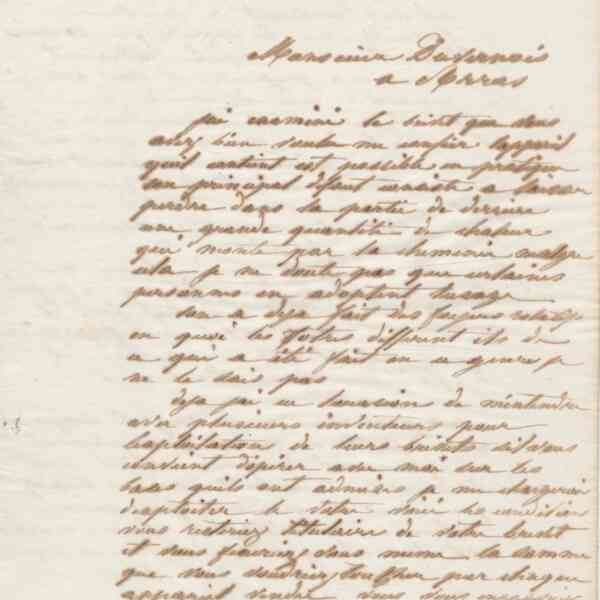 Monsieur Duvernois
a Arras
jai examiné le brevet que vous
avez bien voulu me confier lappareil
quil contient est possible en pratique
son principal défaut consiste a laisser
perdre dans la partie de derriere
une grande quantité de chaleur
qui monte par la cheminée malgre
cela je ne doute pas que certaines
personnes en adoptent lusage
lon a deja fait des foyers
en quoi les votres different ils de
ce qui a été fait en ce genre je
ne le sais pas
deja jai eu loccasion de mentendre
avec plusieurs inventeurs pour
lexploitation de leurs brevets sil vous
convient dopérer avec moi sur les
bases quils ont admises je me chargerai
dexploiter le votre voici les conditions
vous resteriez titulaire de votre brevet
et vous fixeriez vous meme la somme
que vous voudriez toucher par chaque
appareil vendu vous vous